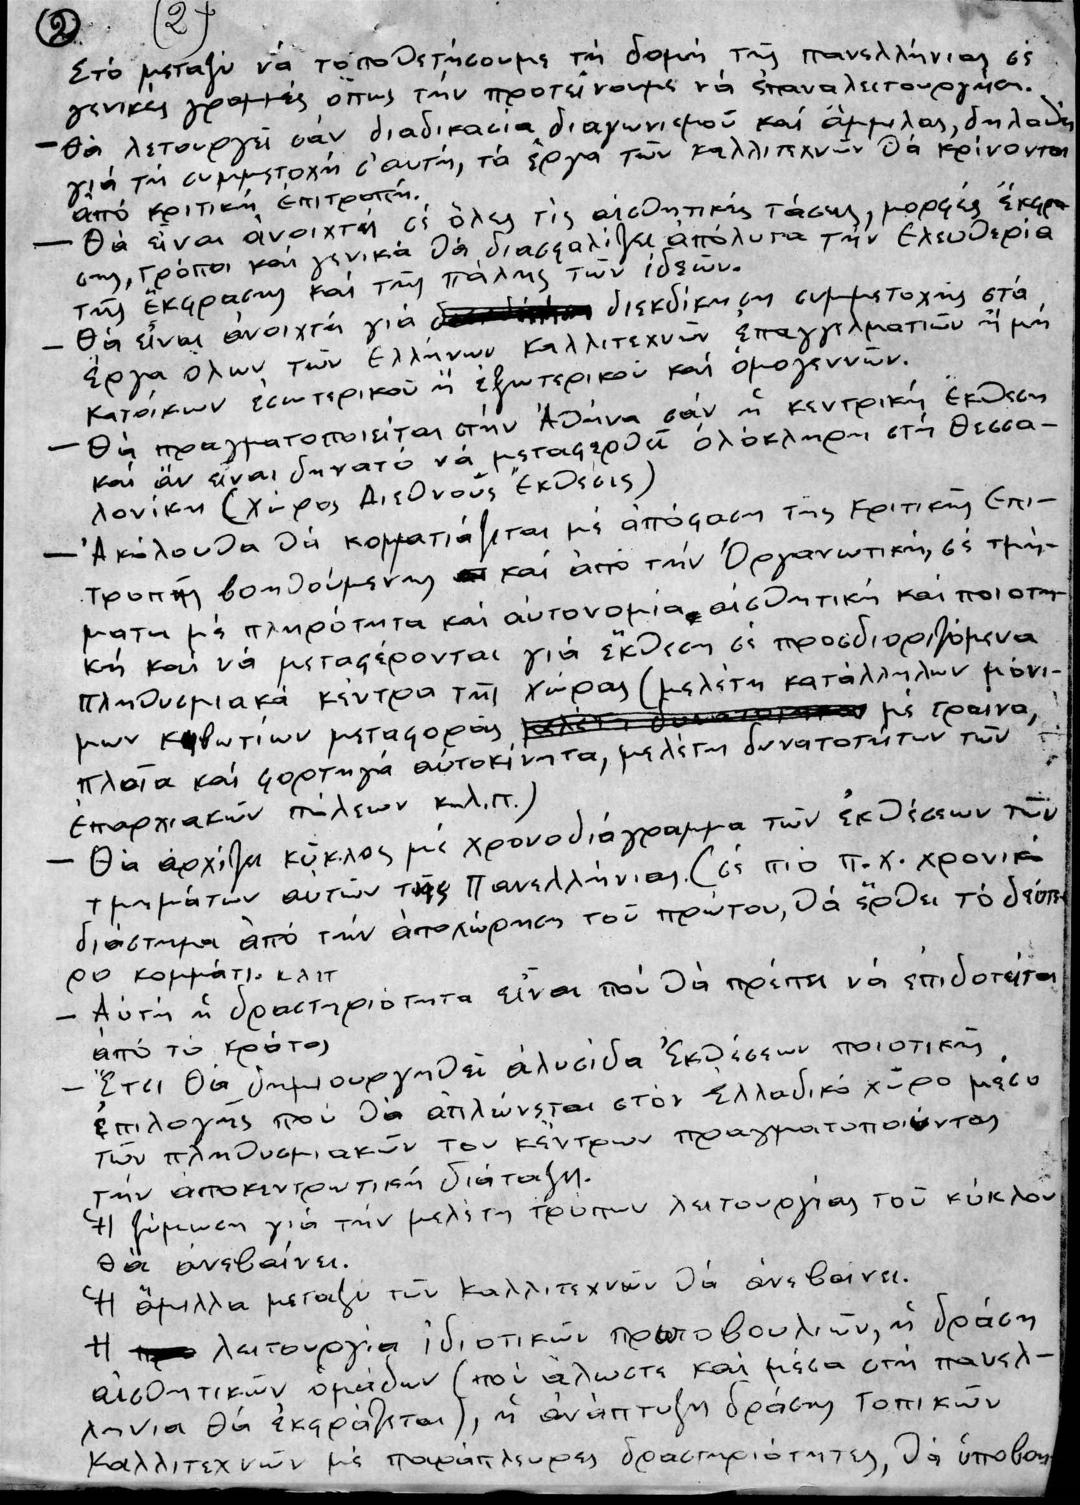 ② (2)
Στό μεταξύ νά τοποθετήσουμε τή δομή τῆς πανελλήνιας σέ
γενικές γραμμές ὅπως τήν προτείνουμε νά ἐπαναλειτουργήσει.
— Θά λετουργεῖ σάν διαδικασία διαγωνισμοῦ καί ἅμμιλας, δηλαδή
γιά τή συμμετοχή σ'αυτή, τά ἔργα τῶν καλλιτεχνῶν θά κρίνονται
ἀπό κριτική ἐπιτροπή.
— Θά εἶναι ἀνοιχτή σέ ὅλες τίς αἰσθητικές τάσεις, μορφές ἔκφρα
σης, τρόποι καί γενικά θά διασφαλίζει ἀπόλυτα τήν ἐλευθερία
τῆς ἔκφρασης καί τῆς πάλης τῶν ἰδεῶν.
— Θά εἶναι ἀνοιχτή γιά διεκδίκηση συμμετοχῆς στά
ἔργα ὅλων τῶν Ἑλλήνων καλλιτεχνῶν ἐπαγγελματιῶν ἤ μή
κατοίκων ἐσωτερικοῦ ἤ ἐξωτερικοῦ καί ὁμογεννῶν.
— Θά πραγματοποιείται στήν Ἀθήνα σάν ἡ κεντρική ἔκθεση
καί ἄν εἶναι δηνατό νά μεταφερθεῖ ὁλόκληρη στή Θεσσα-
λονίκη (χῶρος Διεθνοῦς Ἔκθεσις)
— Ἀκόλουθα θά κομματιάζεται μέ ἀπόφαση τῆς Κριτικῆς Ἐπι-
τροπῆς βοηθούμενης καί ἀπό τήν Ὀργανωτική, σέ τμή-
ματα μέ πληρότητα καί αὐτονομία αἰσθητική καί ποιοτη-
κή καί νά μεταφέρονται γιά ἔκθεση σέ προσδιοριζόμενα
πληθυσμιακά κέντρα τῆς χώρας (μελέτη κατάλληλων μόνι-
μων κιβωτίων μεταφορᾶς μέ τραίνα,
πλοῖα καί φορτηγά αὐτοκίνητα, μελέτη δυνατοτήτων τῶν
ἐπαρχιακῶν πόλεων κ.λ.π.)
— Θά ἀρχίζει κύκλος μέ χρονοδιάγραμμα τῶν ἐκθέσεων τῶν
τμημάτων αὐτῶν τῆς Πανελλήνιας. (σέ πιό π.χ. χρονικό
διάστημα ἀπό τήν ἀποχώρηση τοῦ πρώτου, θά ἔρθει τό δεύτε
ρο κομμάτι. κλπ
— Αὐτή ἡ δραστηριότητα εἶναι πού θά πρέπει νά ἐπιδοτεῖται
ἀπό τό κράτος
— Ἔτσι θά δημιουργηθεῖ ἁλυσίδα Ἐκθέσεων ποιοτικῆς
ἐπιλογῆς πού θά ἁπλώνεται στόν Ἑλλαδικό χῶρο μέσω
τῶν πληθυσμιακῶν του κέντρων πραγματοποιώντας
τήν ἀποκεντρωτική διάταξη.
Ἡ ζύμωση γιά τήν μελέτη τρόπων λειτουργίας τοῦ κύκλου
θά ἀνεβαίνει.
Ἡ ἅμιλλα μεταξύ τῶν καλλιτεχνῶν θά ἀνεβαίνει.
Ἡ λειτουργία ἰδιοτικῶν πρωτοβουλιῶν, ἡ δράση
αἰσθητικῶν ὁμάδων (πού ἄλωστε καί μέσα στή πανελ-
λήνια θά ἐκφράζεται), ἡ ἀνάπτυξη δράσης τοπικῶν
καλλιτεχνῶν μέ παράπλευρες δραστηριότητες, θά ὑποβοη